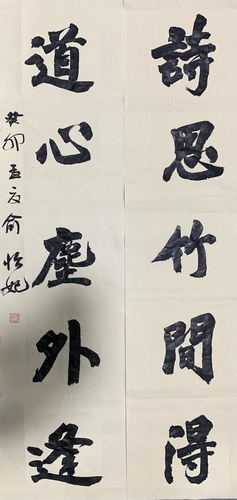 詩思竹間得
道心塵外逢
癸卯孟夏俞悦妃